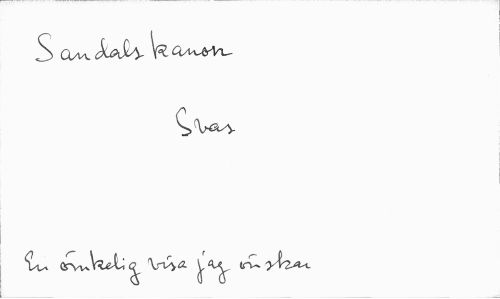 Sandals kanon
Svar
En ömkelig visa jag önskar